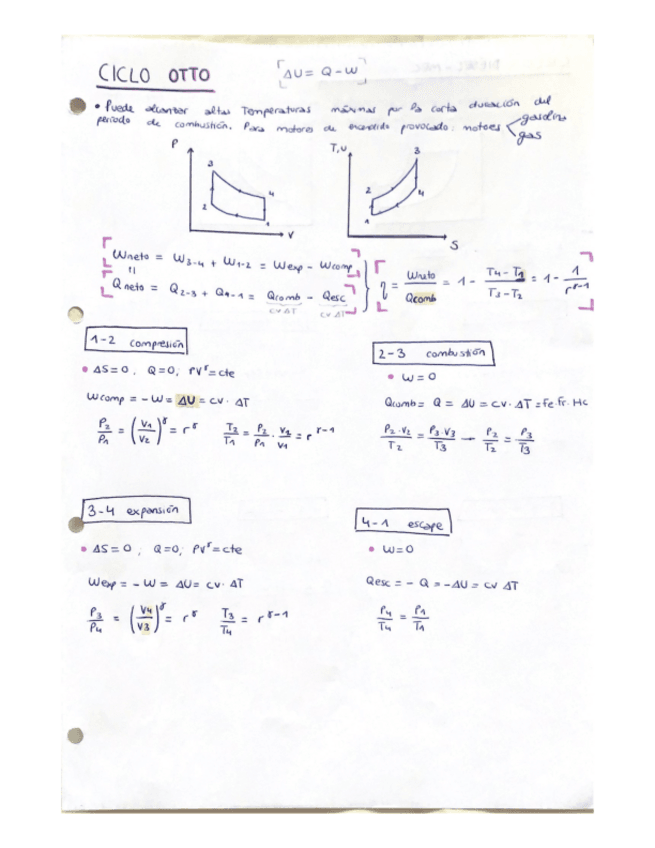 CICLO OTTO
ΔU = Q - W
• Puede alcanzar altas Temperaturas máximas por la corta duración del
periodo de combustión. Para motores de encendido provocado: motores
gasolina
gas
P
3
2
4
1
V
T,U
3
2
4
1
S
Wneto = W3-4 + W1-2 = Wexp - Wcomp
=
Qneto = Q2-3 + Q4-1 = Qcomb - Qesc
CV ΔT CV ΔT
η = Wneto / Qcomb = 1 - (T4 - T1) / (T3 - T2) = 1 - 1 / r^γ-1
1-2 compresión
• ΔS = 0, Q = 0, PV^γ = cte
Wcomp = - W = ΔU = CV · ΔT
P2/P1 = (V1/V2)^γ = r^γ T2/T1 = P2/P1 · V2/V1 = r^γ-1
2-3 combustión
• W = 0
Qcomb = Q = ΔU = CV · ΔT = Fe. Fr. Hc
P2·V2/T2 = P3·V3/T3 → P2/T2 = P3/T3
3-4 expansión
• ΔS = 0, Q = 0, PV^γ = cte
Wexp = - W = ΔU = CV · ΔT
P3/P4 = (V4/V3)^γ = r^γ T3/T4 = r^γ-1
4-1 escape
• W = 0
Qesc = - Q = - ΔU = CV ΔT
P4/T4 = P1/T1